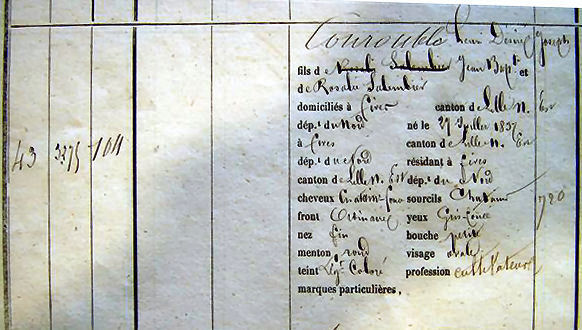 Courouble henri Désiré Joseph
fils d e Jean Bapt. et
d e Rosalie Salembier
domiciliés à Fives canton de Lille N. Est
dép.t du Nord né le 27 Juillet 1837
à Fives canton de Lille N. Est
dép.t du Nord résidant à Fives
canton de Lille N. Est dép.t du Nord
43 3275 104
cheveux Chatain sourcils Chatain 720
front Ordinaire yeux Gris
nez fin bouche petite
menton rond visage ovale
teint Lég.t Coloré profession cultivateur
marques particulières,